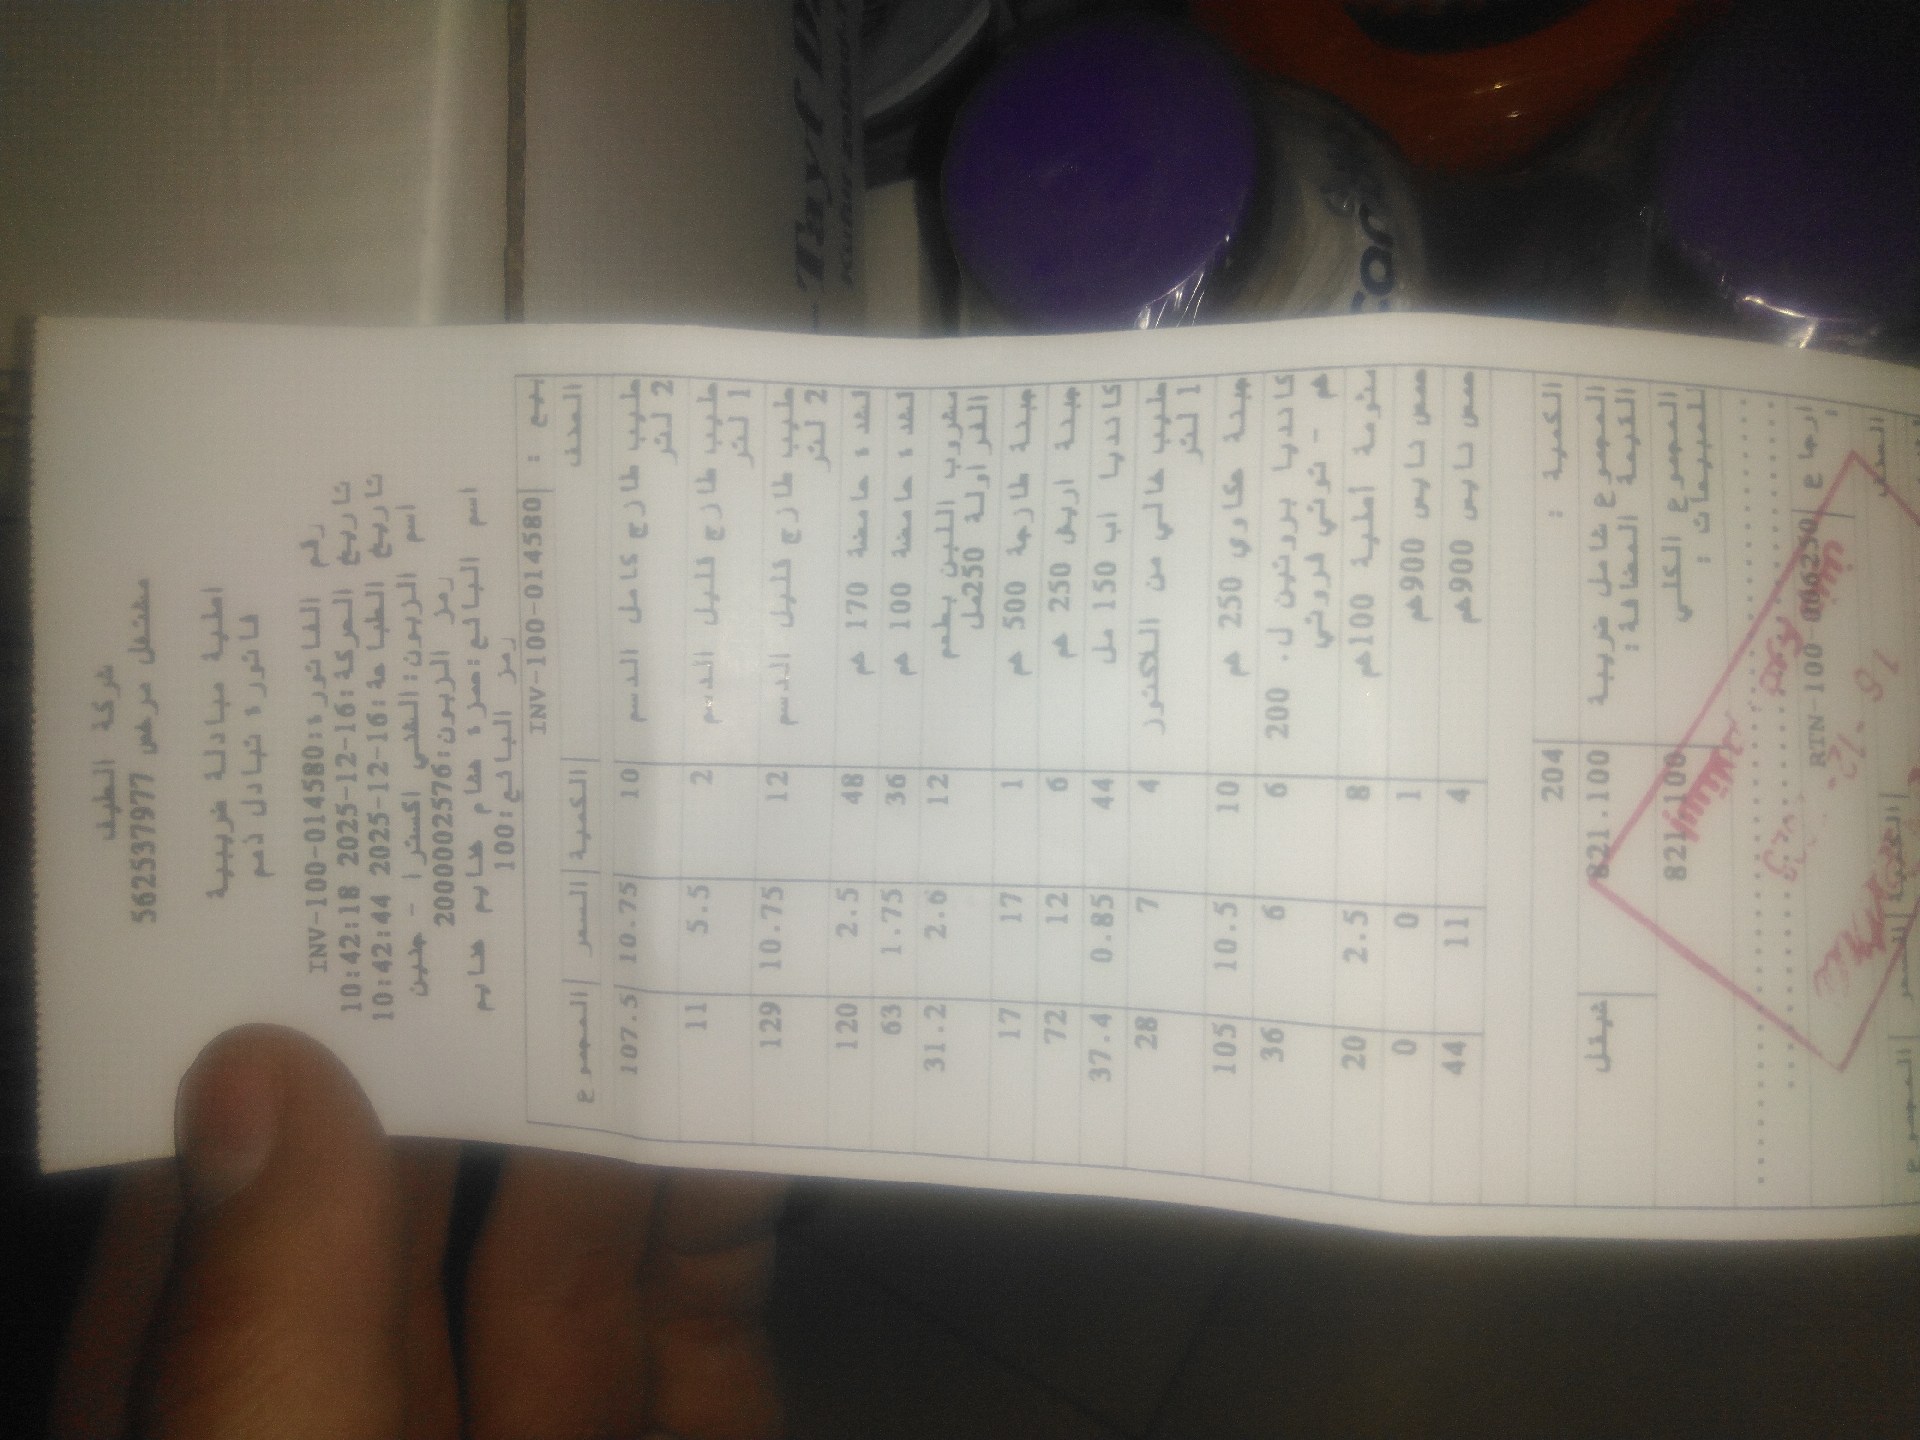 شركة الطيف
مشتغل مرخص 562537977
اطلبة مبادلة ضريبية
فاتورة تبادل ذمم
رقم الفاتورة:INV-100-014580
تاريخ الحركة:16-12-2025 10:42:18
تاريخ الطباعة:16-12-2025 10:42:44
اسم الزبون: اكسترا - جنين
رمز الزبون:2000002576
اسم البائع:حمزة هشام
رمز البائع:100
بيع : INV-100-014580
الصنف الكمية السعر المجموع
حليب طازج كامل الدسم 2 لتر 10 10.75 107.5
حليب طازج قليل الدسم 1 لتر 2 5.5 11
حليب طازج قليل الدسم 2 لتر 12 10.75 129
لشدة حامضة 170 غم 48 2.5 120
لشدة حامضة 100 غم 36 1.75 63
مشروب اللبن بطعم الفراولة 250مل 12 2.6 31.2
جبنة طازجة 500 غم 1 17 17
جبنة 250 غم 6 12 72
كانديا اب 150 مل 44 0.85 37.4
حليب خالي من اللاكتوز 1 لتر 4 7 28
جبنة عكاوي 250 غم 10 10.5 105
كانديا بروتين ل. 200 6 6 36
غم - توتي فروتي
مثومة 100غم 8 2.5 20
900غم 1 0 0
900غم 4 11 44
الكمية : 204
المجموع شامل ضريبة القيمة المضافة: 821.100 شيقل
المجموع الكلي للمبيعات : 821.100
ارجاع : RTN-100-006250
الصنف السعر المجموع